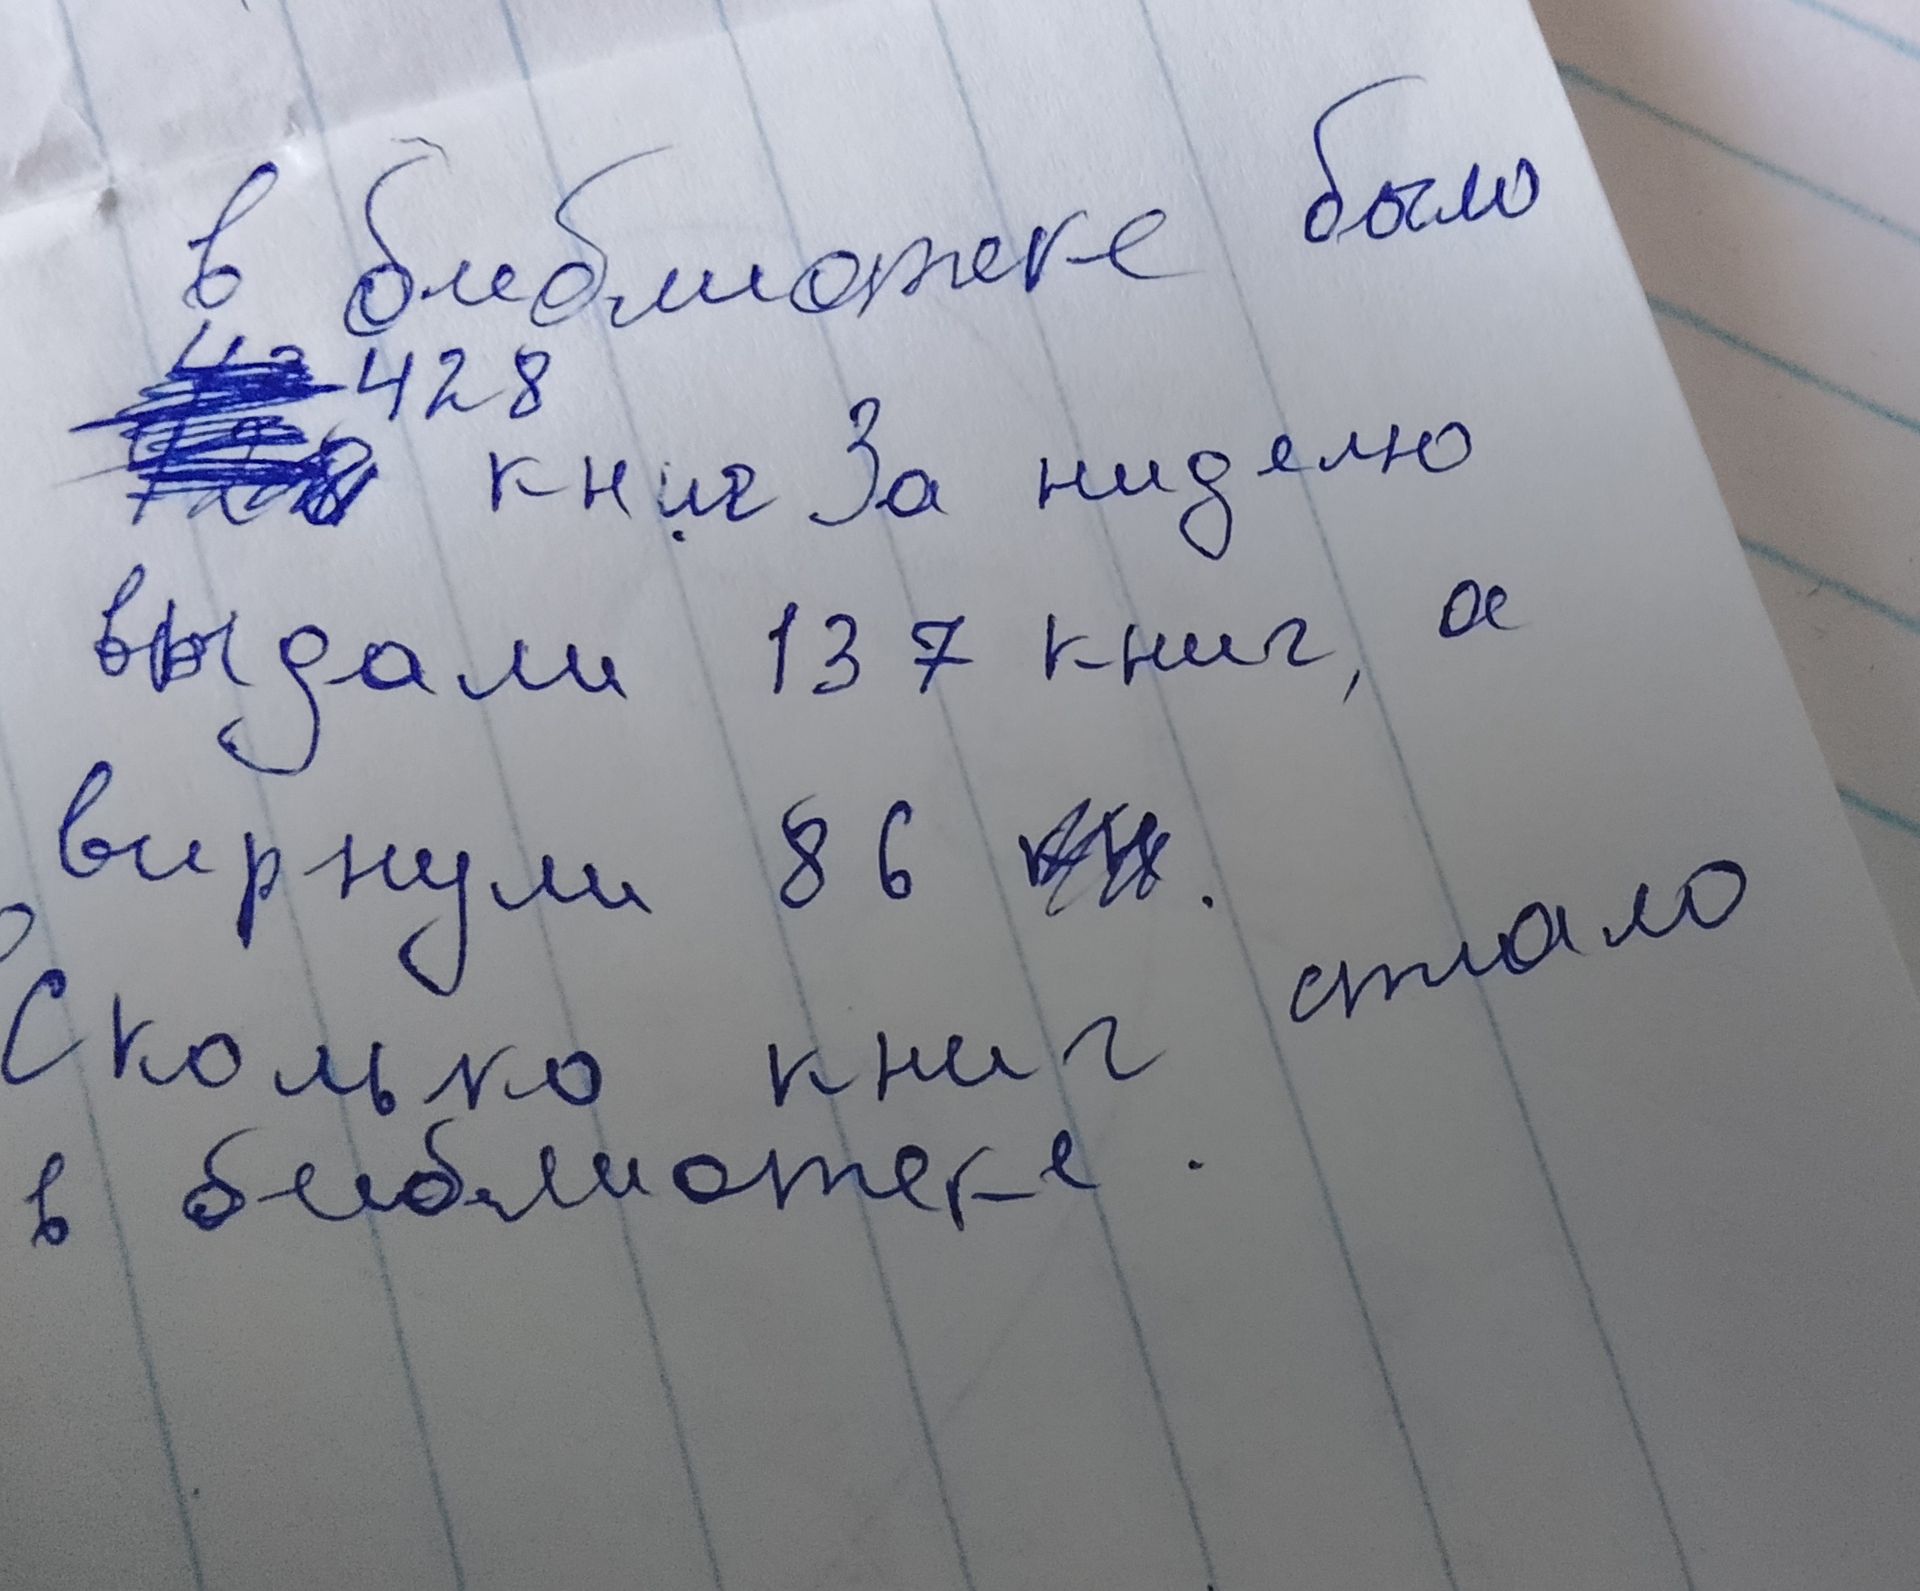 в библиотеке было
428
книг За ниделю
выдали 137 книг, а
вирнули 86 .
Сколько книг стало
в библиотеке .